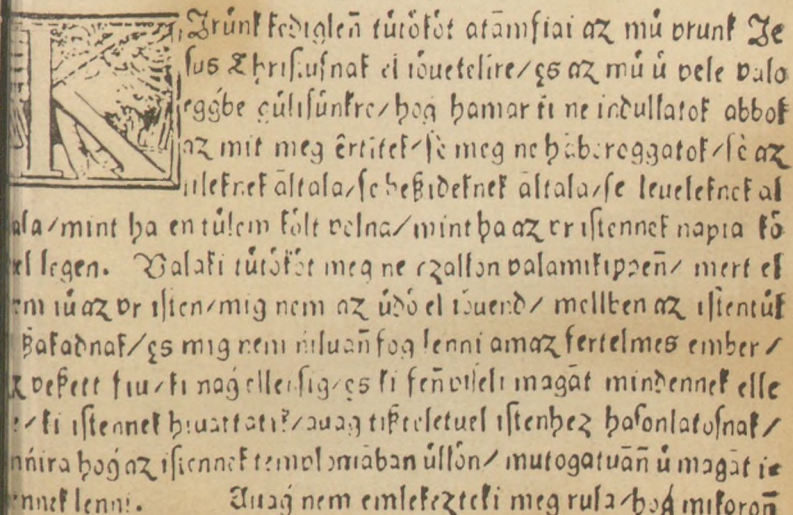 KErünk kediglen̄ tűtőkőt atāmfiai az mű vrunk Je
sus Christusnak el iőuetelire/ ęs az mű ű vele valo
eggbe gűlisűnkre/ hog hamar ki ne indullatok abbol
az mit meg ērtitek/ sē meg ne haboroggatok/ sē az
ileknek āltala/ se beßideknek āltala/ se leueleknek al
ala/ mint ha en tűlem kőlt volna/ mint ha az vr istennek napia kő
el legen. Valaki tűtőkőt meg ne czallon valamikippen̄/ mert el
em iű az vr isten/ mig nem az űdő el iőuend/ mellben az istentűl
ßakadnak/ ęs mig nem niluan̄ fog lenni amaz fertelmes ember/
z veßett fiu/ ki nag ellensig/ ęs ki fen̄ viseli magāt mindennek elle
e/ ki istennek hiuattatik/ auag tißteletuel istenhez hasonlatosnak/
nńira hog az istennek templomāban űllőn/ mutogatuān̄ ű magāt is
ennek lenni. Auag nem emlekezteki meg rula/ hog mikoron̄